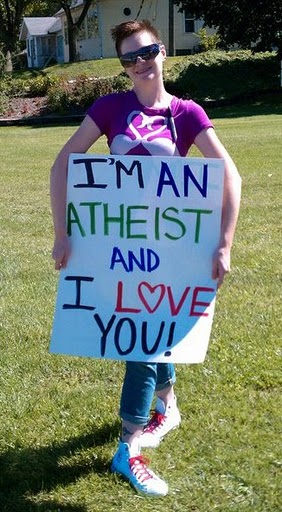 I'M AN
ATHEIST
AND
I LOVE
YOU!